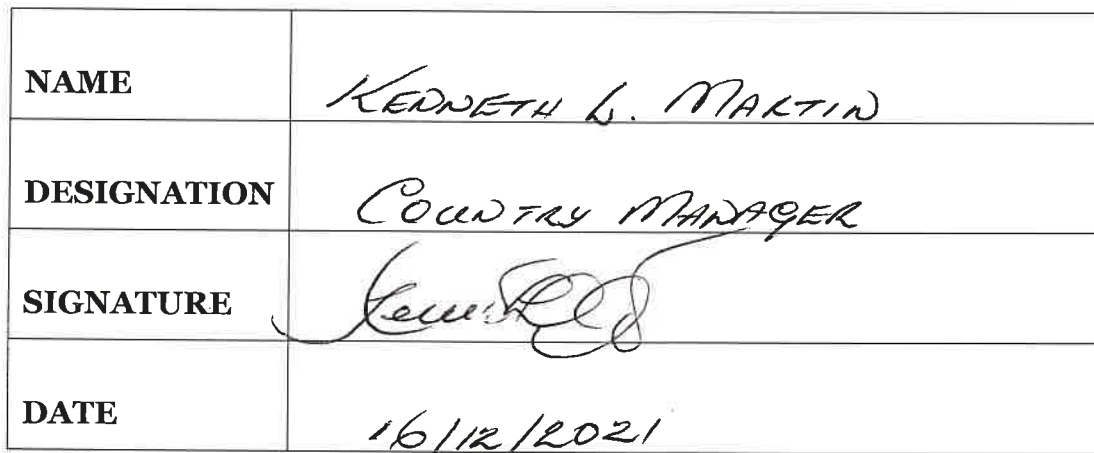 NAME KENNETH L. MARTIN
DESIGNATION COUNTRY MANAGER
SIGNATURE
DATE 16/12/2021